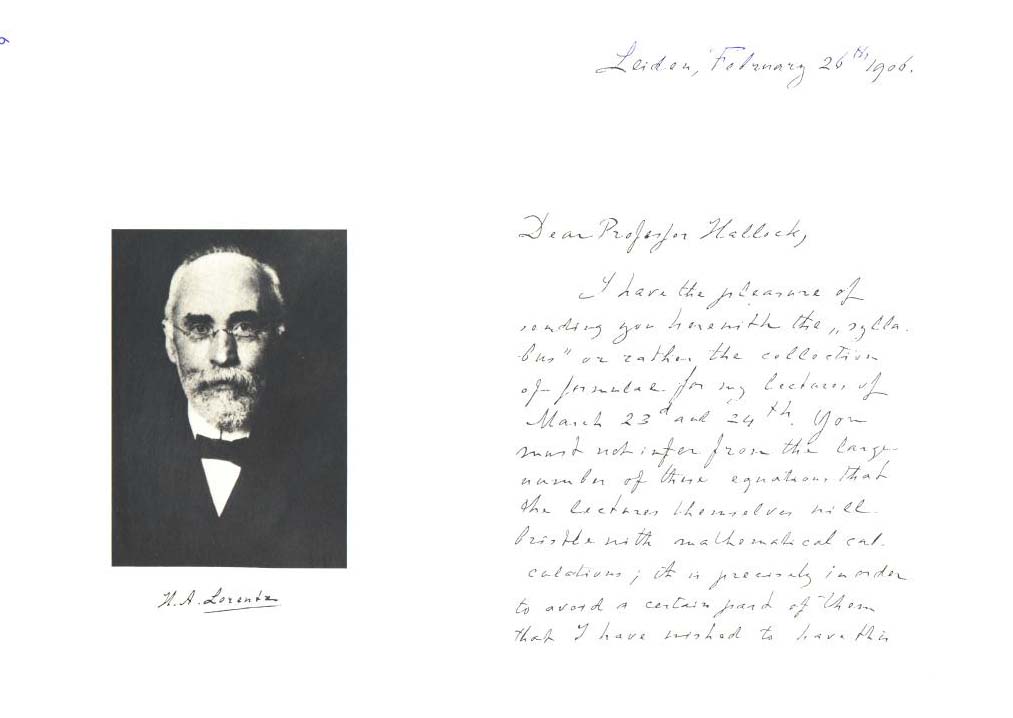 Leiden, February 26th, 1906.
Dear Professor Hallock,
I have the pleasure of
sending you herewith the „sylla-
bus" or rather the collection
of formulae for my lectures of
March 23d and 24th. You
must not infer from the large
number of these equations that
the lectures themselves will
bristle with mathematical cal-
culations; it is precisely in order
to avoid a certain part of them
that I have wished to have this
H. A. Lorentz